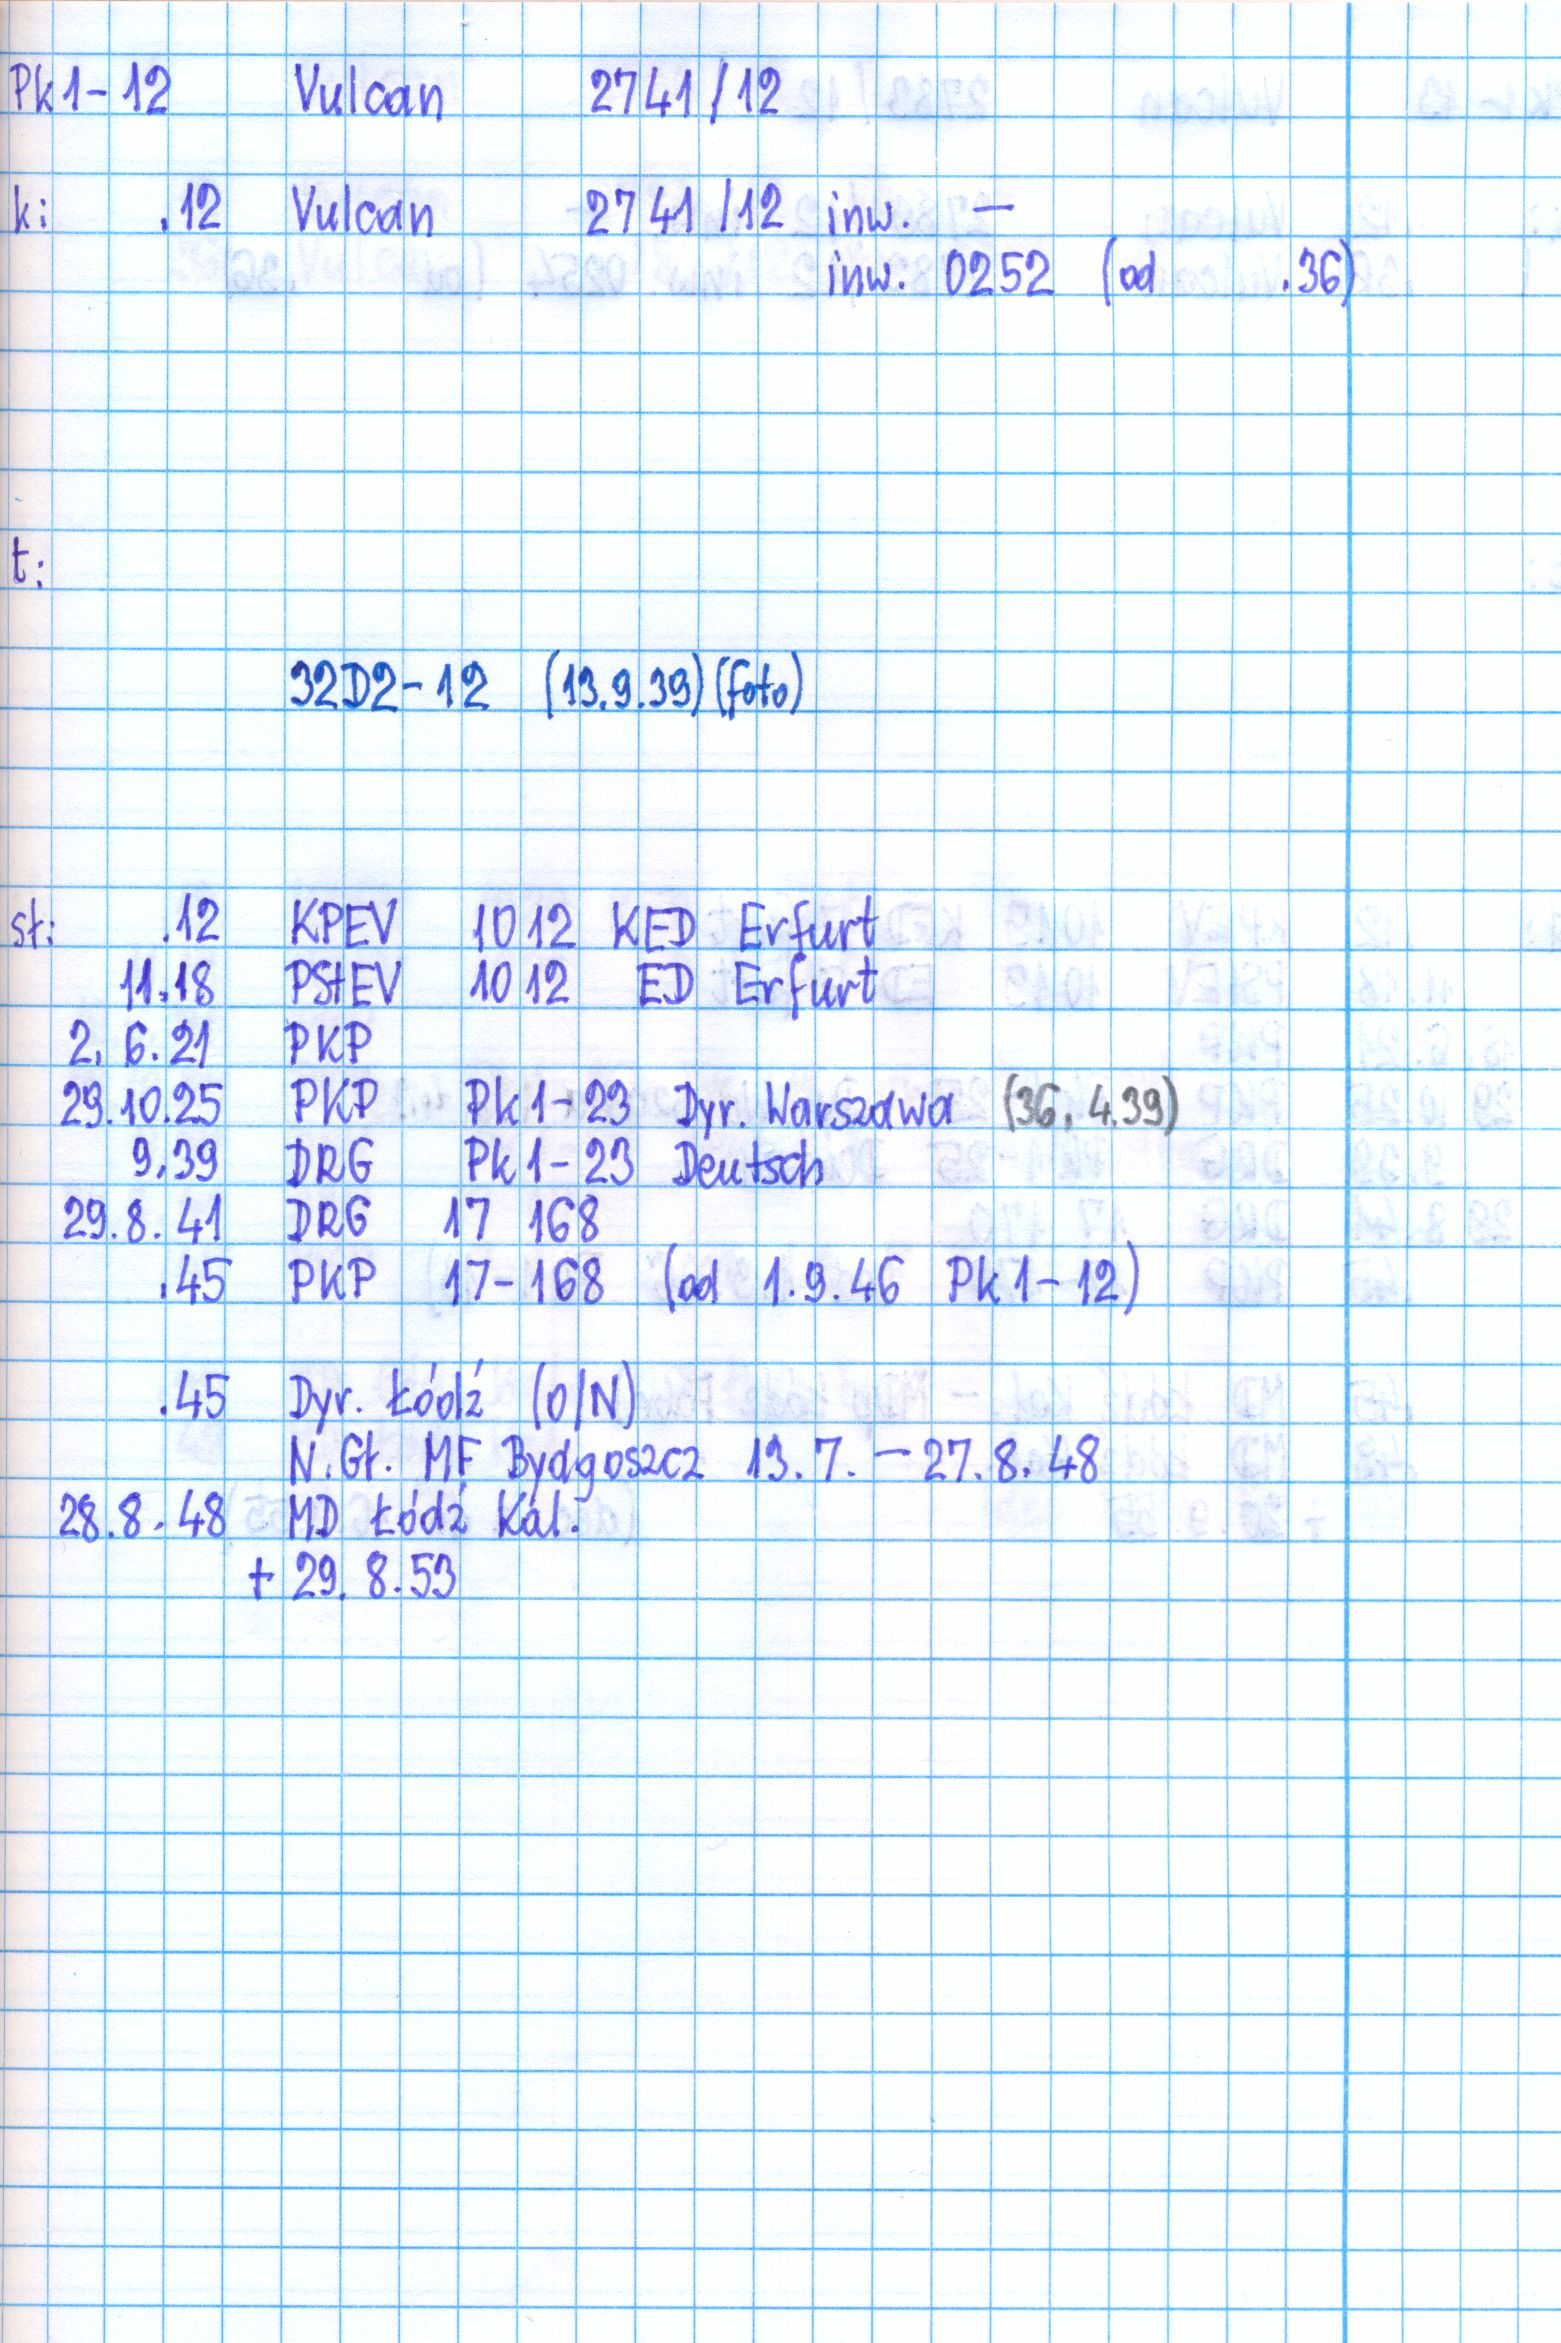 Pk1-12 Vulcan 2741/12
k: .12 Vulcan 2741/12 inw. —
inw. 0252 (od .36)
t:
32D2-12 (13.9.39) (foto)
st: .12 KPEV 1012 KED Erfurt
11.18 PStEV 1012 ED Erfurt
2.6.21 PKP
29.10.25 PKP Pk1-23 Dyr. Warszawa (36, 4.39)
9.39 DRG Pk1-23 Deutsch
29.8.41 DRG 17 168
.45 PKP 17-168 (od 1.9.46 Pk1-12)
.45 Dyr. Łódź (O/N)
N.Gł. MF Bydgoszcz 13.7. — 27.8.48
28.8.48 MD Łódź Kal.
+ 29.8.53